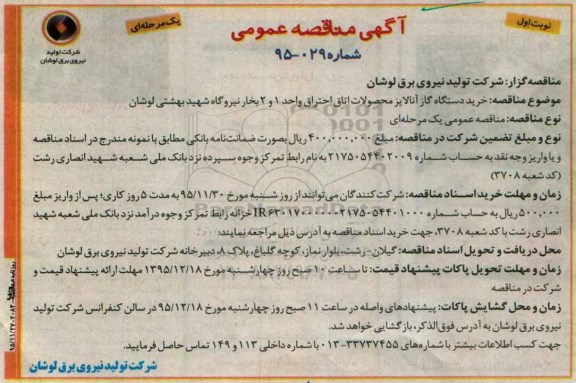 نوبت اول
آگهی مناقصه عمومی
یک مرحله‌ای
شماره ۰۲۹-۹۵
شرکت تولید
نیروی برق لوشان
مناقصه گزار: شرکت تولید نیروی برق لوشان
موضوع مناقصه: خرید دستگاه گاز آنالایزر محصولات اتاق احتراق واحد ۱ و ۲ بخار نیروگاه شهید بهشتی لوشان
نوع مناقصه: مناقصه عمومی یک مرحله‌ای
نوع و مبلغ تضمین شرکت در مناقصه: مبلغ ۴۰۰,۰۰۰,۰۰۰ ریال بصورت ضمانت‌نامه بانکی مطابق با نمونه مندرج در اسناد مناقصه
و یا واریز وجه نقد به حساب شماره ۲۱۷۵۰۵۴۴۰۲۰۰۹ به نام رابط تمرکز وجوه سپرده نزد بانک ملی شعبه شهید انصاری رشت
(کد شعبه ۳۷۰۸)
زمان و مهلت خرید اسناد مناقصه: شرکت کنندگان می‌توانند از روز شنبه مورخ ۹۵/۱۱/۳۰ به مدت ۵ روز کاری؛ پس از واریز مبلغ
۵۰۰,۰۰۰ ریال به حساب شماره خزانه رابط تمرکز وجوه درآمد نزد بانک ملی شعبه شهید
انصاری رشت با کد شعبه ۳۷۰۸، جهت خرید اسناد مناقصه به آدرس ذیل مراجعه نمایند:
محل دریافت و تحویل اسناد مناقصه: گیلان - رشت، بلوار نماز، کوچه گلباغ، پلاک ۸، دبیرخانه شرکت تولید نیروی برق لوشان
زمان و مهلت تحویل پاکات پیشنهاد قیمت: تا ساعت ۱۰ صبح روز چهارشنبه مورخ ۱۳۹۵/۱۲/۱۸ مهلت ارائه پیشنهاد قیمت و
شرکت در مناقصه
زمان و محل گشایش پاکات: پیشنهادهای واصله در ساعت ۱۱ صبح روز چهارشنبه مورخ ۹۵/۱۲/۱۸ در سالن کنفرانس شرکت تولید
نیروی برق لوشان به آدرس فوق‌الذکر، بازگشایی خواهد شد.
جهت کسب اطلاعات بیشتر با شماره‌های ۳۳۷۳۷۴۵۵-۰۱۳ با شماره داخلی ۱۱۳ و ۱۴۹ تماس حاصل فرمایید.
شرکت تولید نیروی برق لوشان